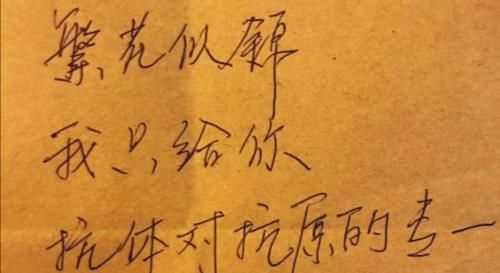 繁花似锦
我只给你
抗体对抗原的专一